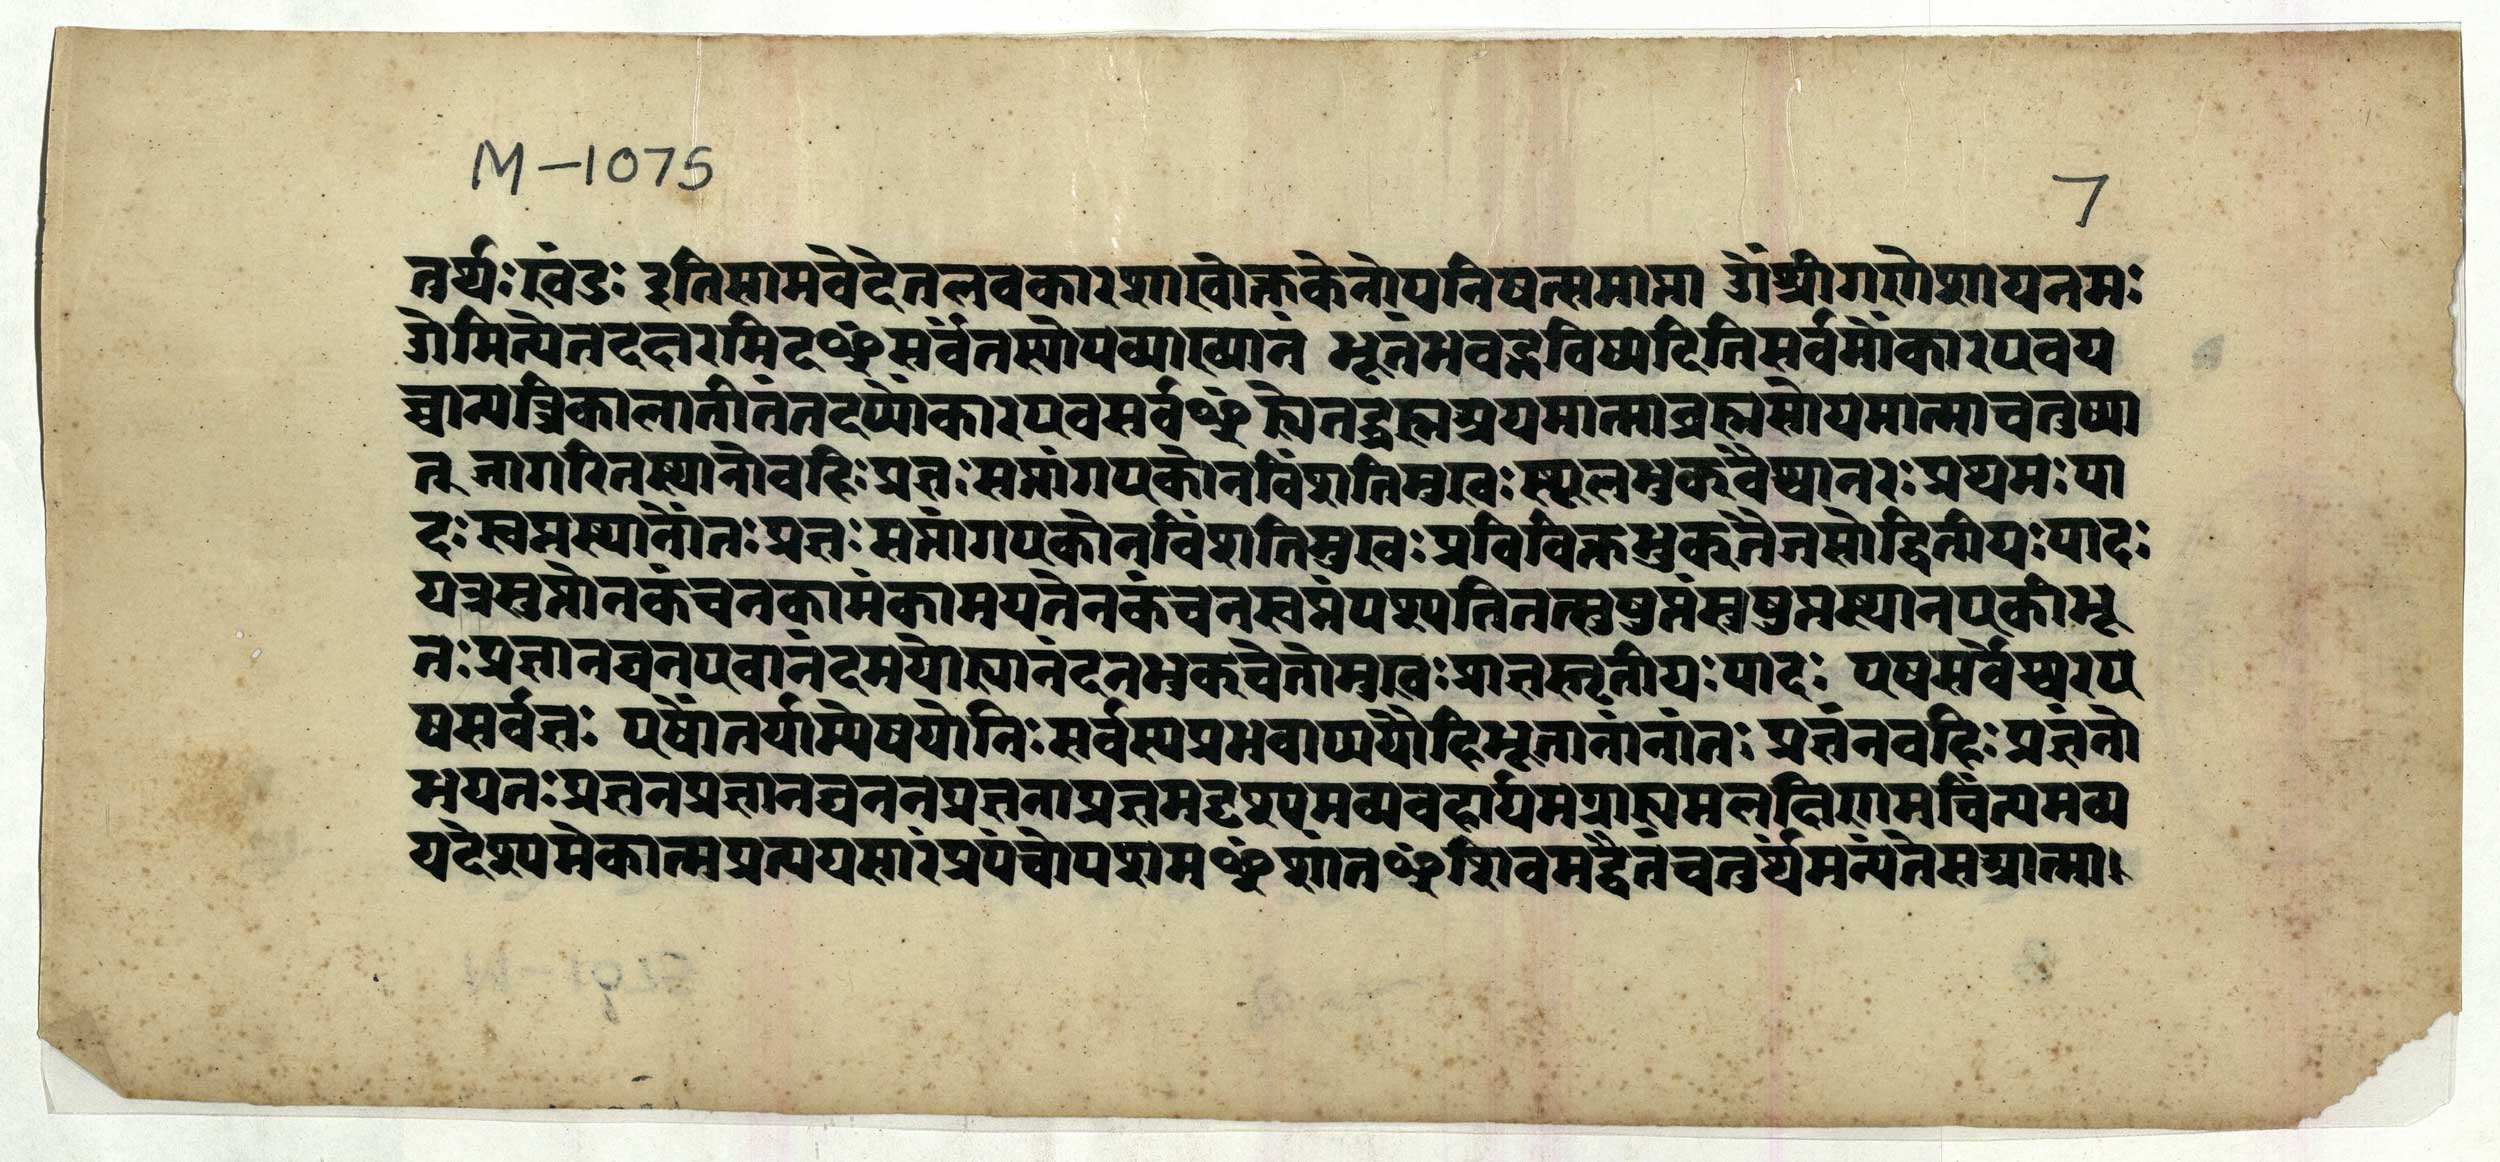 M-1075
7
तुर्थः खंडः इतिसामवेदेतलवकारशाखोक्तकेनोपनिषत्समाप्ता ॐश्रीगणेशायनमः
ओमित्येतदक्षरमिदꣳसर्वंतस्योपव्याख्यानं भूतंभवद्भविष्यदितिसर्वमोंकारएवय
च्चान्यत्त्रिकालातीतंतदप्योंकारएवसर्वꣳह्येतद्ब्रह्मअयमात्माब्रह्मसोयमात्माचतुष्पा
त् जागरितस्थानोवहिःप्रज्ञःसप्तांगएकोनविंशतिमुखःस्थूलभुक्वैश्वानरःप्रथमःपा
दःस्वप्नस्थानोंतःप्रज्ञःसप्तांगएकोनविंशतिमुखःप्रविविक्तभुक्तैजसोद्वितीयःपादः
यत्रसुप्तोनकंचनकामंकामयतेनकंचनस्वप्नंपश्यतितत्सुषुप्तंसुषुप्तस्थानएकीभू
तःप्रज्ञानघनएवानंदमयोह्यानंदनभुक्चेतोमुखःप्राज्ञस्तृतीयःपादः एषसर्वेश्वरए
षसर्वज्ञः एषोंतर्याम्येषयोनिःसर्वस्यप्रभवाप्ययौहिभूतानांनांतःप्रज्ञंनवहिःप्रज्ञंनो
भयतःप्रज्ञनप्रज्ञानघननप्रज्ञनाप्रज्ञमदृश्यमव्यवहार्यमग्राह्यमलक्षिणमचिंत्यमव्य
यदेश्यमेकात्मप्रत्ययसारंप्रपंचोपशमꣳशांतꣳशिवमद्वैतंचतुर्थमन्यंतेसआत्मा।